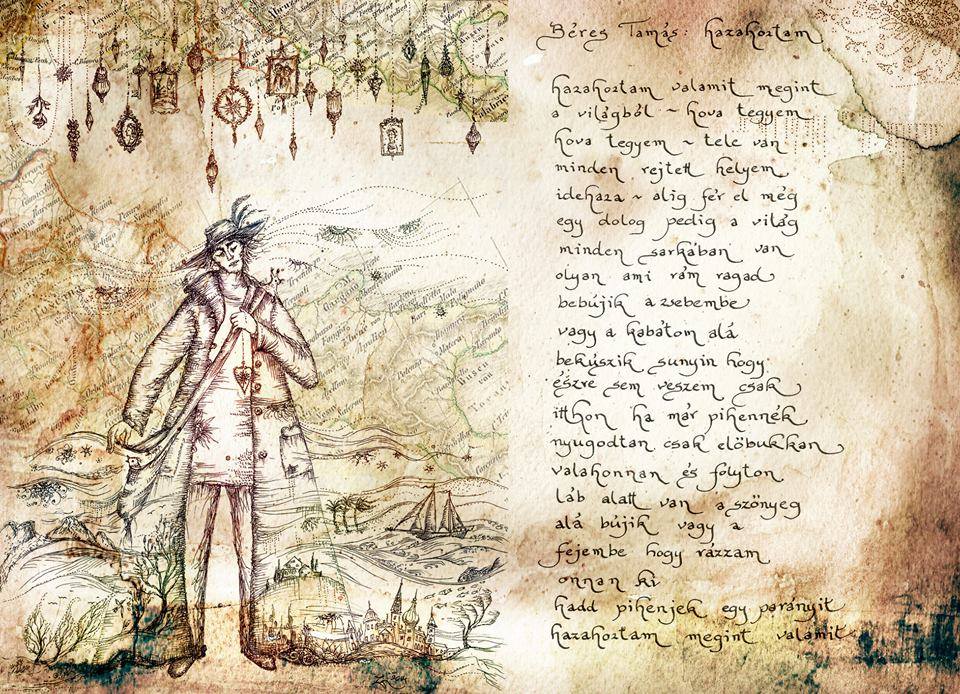 Béres Tamás: hazahoztam
hazahoztam valamit megint
a világból ~ hova tegyem
hova tegyem ~ tele van
minden rejtett helyem
idehaza ~ alig fér el még
egy dolog pedig a világ
minden sarkában van
olyan ami rám ragad
bebújik a zsebembe
vagy a kabátom alá
bekúszik sunyin hogy
észre sem veszem csak
itthon ha már pihennék
nyugodtan csak előbukkan
valahonnan és folyton
láb alatt van a szőnyeg
alá bújik vagy a
fejembe hogy rázzam
onnan ki
hadd pihenjek egy parányit
hazahoztam megint valamit